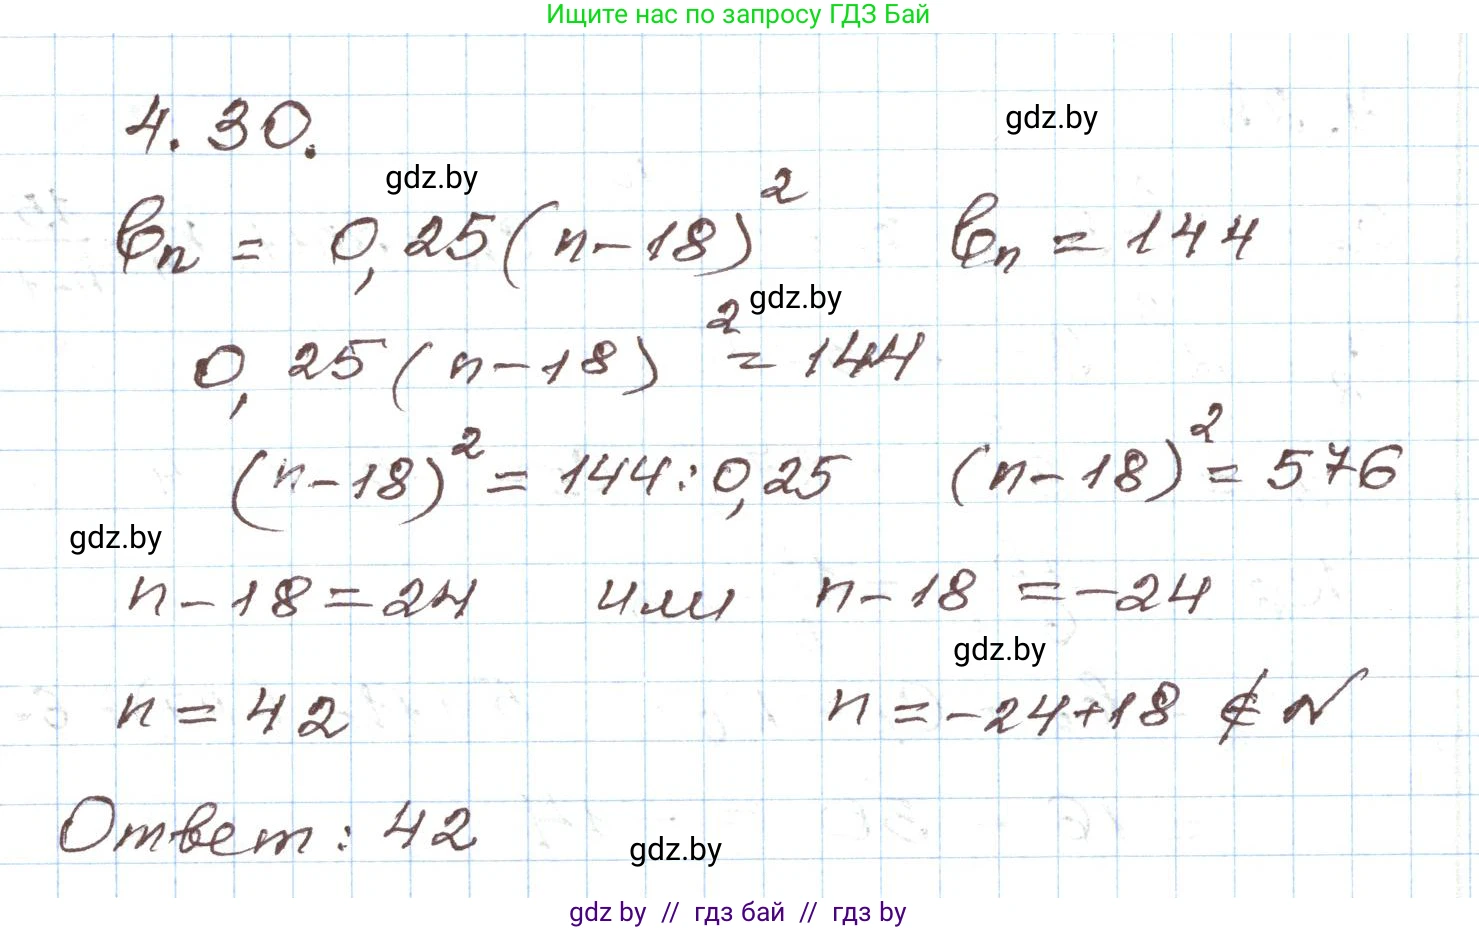 Ищите нас по запросу ГДЗ Бай
4.30.
gdz.by
gdz.by
bₙ = 0,25(n-18)² bₙ = 144
gdz.by
0,25(n-18)² = 144
(n-18)² = 144:0,25 (n-18)² = 576
gdz.by
n-18=24 или n-18 =-24
gdz.by
n = 42 n = -24+18 ∉ N
Ответ: 42
gdz.by
gdz by // гдз бай // гдз by